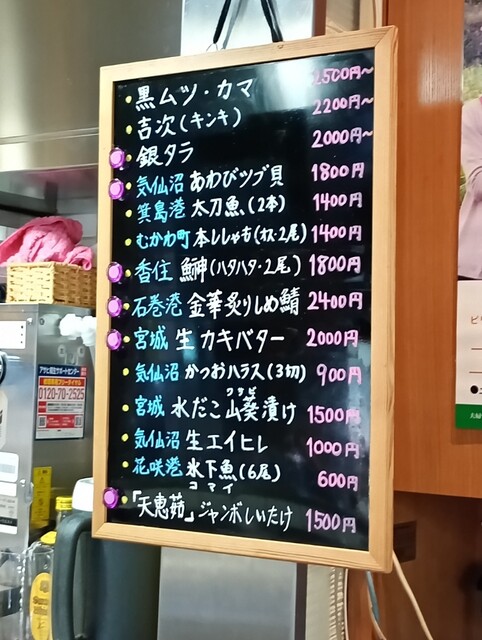 黒ムツ・カマ 2500円~
吉次(キンキ) 2200円~
銀タラ 2000円~
気仙沼 あわびツブ貝 1800円
箕島港 太刀魚(2本) 1400円
むかわ町 本ししゃも(オス・2尾) 1400円
香住 鰰(ハタハタ・2尾) 1800円
石巻港 金華炙りしめ鯖 2400円
宮城 生カキバター 2000円
気仙沼 かつおハラス(3切) 900円
宮城 水だこ山葵漬け 1500円
ワサビ
気仙沼 生エイヒレ 1000円
花咲港 氷下魚(6尾) 600円
コマイ
「天恵菇」ジャンボしいたけ 1500円
アサヒ樽生サポートセンター
0120-70-2525